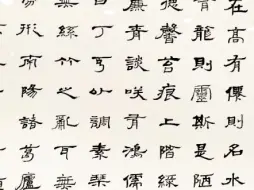 在高有僊則名水
有龍則靈斯是陋
德馨苔痕上階綠
簾青談咲有鴻儒
丁可以調素琴
無絲竹之亂耳無
形南陽諸葛廬